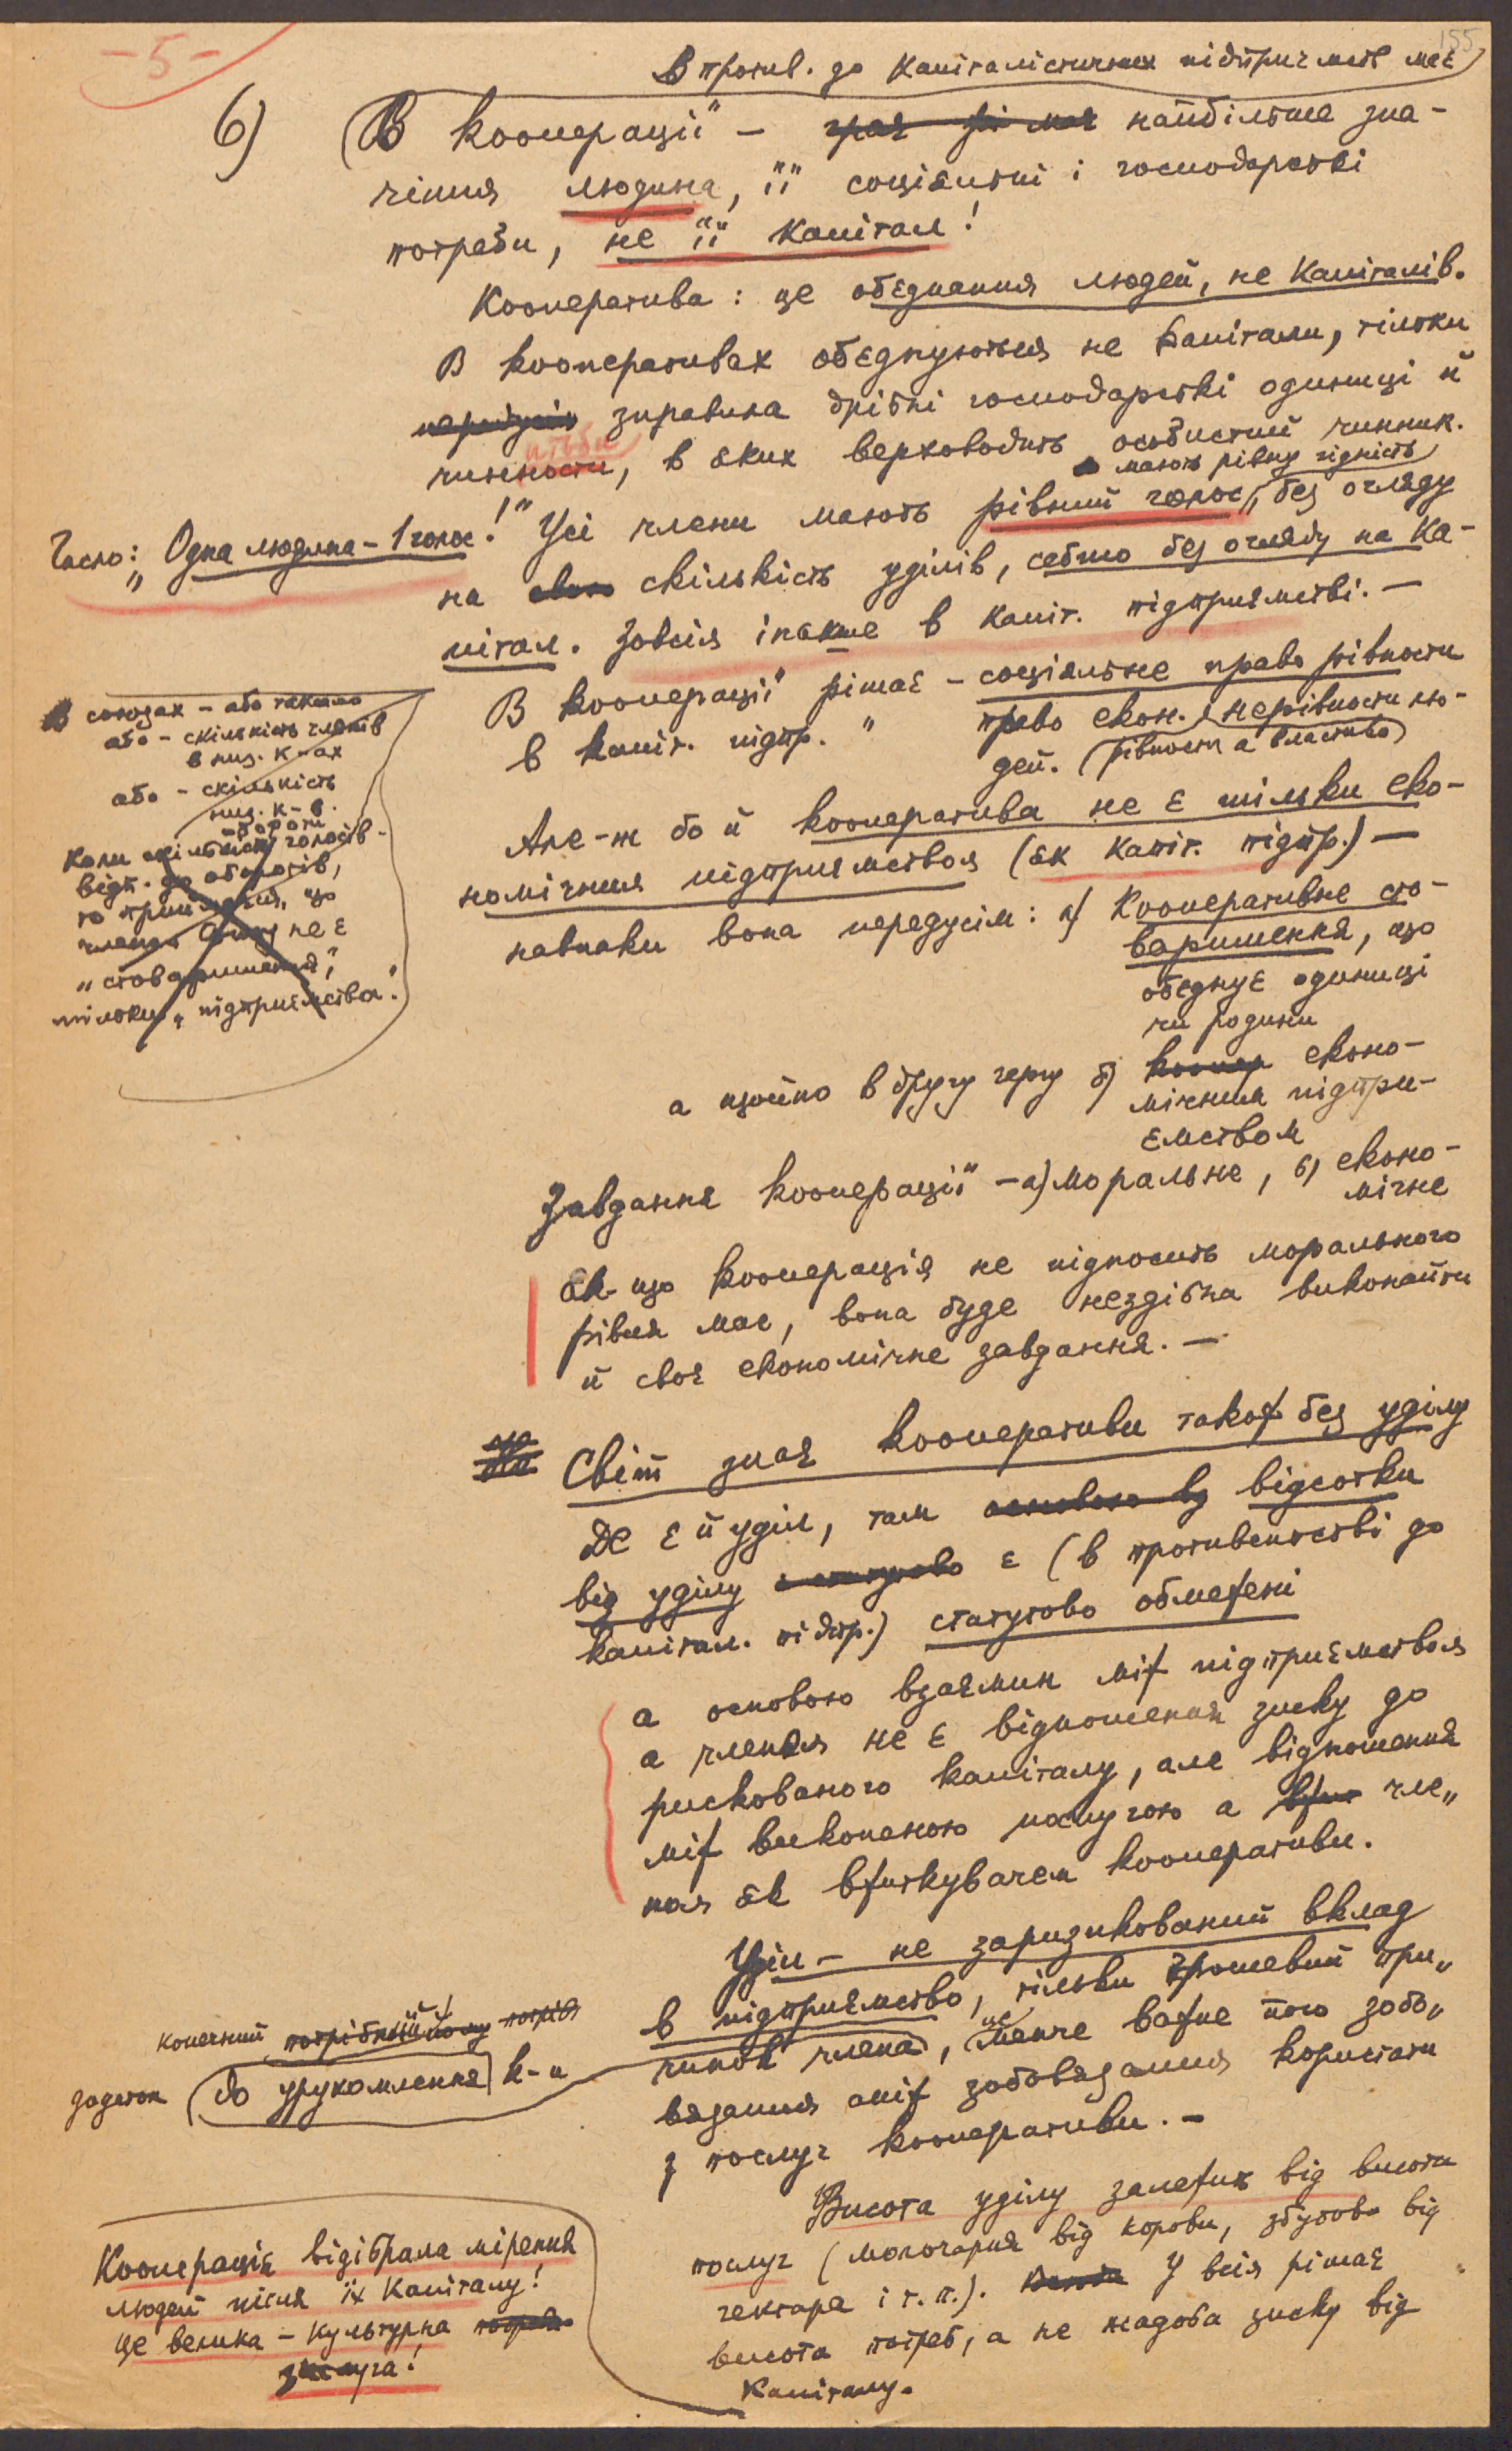 - 5 -
155
В против. до капіталістичних підприємств має
6) В кооперації – найбільше зна-
чіння людина, її соціяльні і господарські
потреби, не її капітал!
Кооператива: це обєднання людей, не капіталів.
В кооперативах обєднуються не капітали, тільки
зправила дрібні господарські одиниці й
, в яких верховодить особистий чинник.
мають рівну гідність
Гасло: „Одна людина – 1 голос!" Усі члени мають рівний голос, без огляду
на скількість уділів, себто без огляду на ка-
пітал. Зовсім інакше в капіт. підприємстві. –
В кооперації рішає – соціяльне право рівности
в капіт. підпр. " право екон. нерівности лю-
дей. (рівности а власника)
В союзах – або також
або – скількість членів
в низ. к-ах
або – скількість
низ. к-в.
Коли скількість голосів
відп. до оборотів,
то
не є
„стовариш
тільки „підприємства".
Але-ж бо й кооператива не є тільки еко-
номічним підприємством (як капіт. підпр.) –
навпаки вона передусім: а) кооперативне сто-
варишення, що
обєднує одиниці
чи родини
а щойно в другу чергу б) еконо-
мічним підпри-
ємством
Завдання кооперації – а) моральне, б) еконо-
мічне
Як-що кооперація не підносить морального
рівня мас, вона буде нездібна виконати
й своє економічне завдання. –
Світ знає кооперативи також без уділу
Де є й уділ, там основою від відсотки
від уділу є (в противенстві до
капітал. підпр.) статутово обмежені
а основою взаємин між підприємством
а членом не є відношення зиску до
рискованого капіталу, але відношення
між виконаною послугою а чле„
ном як вжиткувачем кооперативи.
Уділ – не заризикований вклад
в підприємство, тільки грошевий при„
чинок члена, не менче важне його зобо„
вязання аніж зобовязання користати
з послуг кооперативи. –
конечний потрібний йому
задаток до урухомлення к-и
Висота уділу залежить від висоти
послуг (молочарня від корови, збутова від
гектара і т. п.). У всім рішає
висота потреб, а не жадоба зиску від
капіталу.
Кооперація відібрала мірення
людей після їх капіталу!
Це велика – культурна
заслуга!